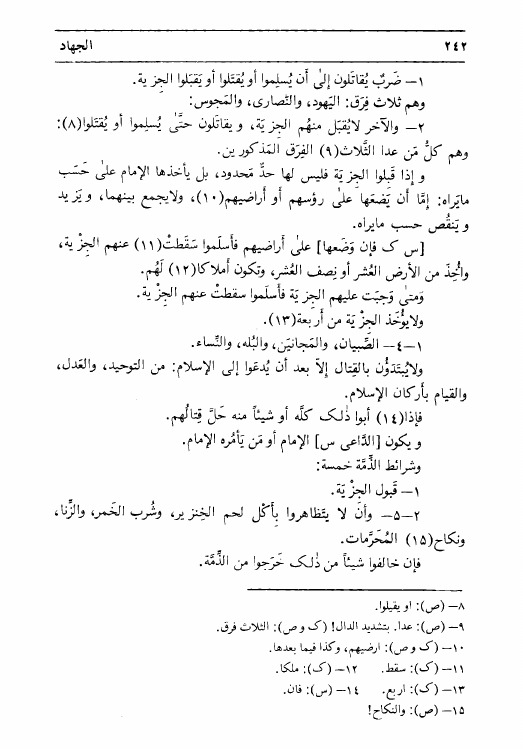 ٢٤٢ الجهاد
١– ضَربٌ يُقاتَلون إلىٰ أن يُسلِموا أو يُقتَلوا أو يَقبَلوا الجزية.
وهم ثلاث فِرَق: اليَهود، والنَّصارى، والمَجوس:
٢– والآخر لايُقبَل منهُم الجزية، ويقاتلون حتَّىٰ يُسلِموا أو يُقتَلوا(٨):
وهم كلُّ مَن عدا الثَّلاث(٩) الفِرَق المَذكورين.
و إذا قَبِلوا الجزية فليس لها حدٌّ مَحدود، بل يأخذها الإمام علىٰ حَسَب
مايَراه: إمَّا أن يَضَعها علىٰ رؤسهم أو أراضيهم(١٠)، ولايجمع بينهما، ويَزيد
و يَنقُص حسب مايراه.
[س ک فإن وَضَعها] علىٰ أراضيهم فأسلَموا سَقَطتْ(١١) عنهم الجِزْية،
واُخِذَ من الأرض العُشر أو نِصف العُشر، وتكون أملاكا(١٢) لَهُم.
وَمتىٰ وَجَبَت عليهم الجزية فأسلَموا سقطتْ عنهم الجزية.
ولايُؤخَذ الجِزْية من أربعة(١٣).
١–٤– الصِّبيان، والمَجانيَن، والبُله، والنِّساء.
ولايُبتَدَؤُن بالقِتال إلاّ بعد أن يُدعَوا إلى الإسلام: من التوحيد، والعَدل،
والقيام بأركان الإسلام.
فإذا(١٤) أبوا ذٰلك كلَّه أو شيئاً منه حَلَّ قِتالُهم.
و يكون [الدَّاعى س] الإمام أو مَن يَأمُره الإمام.
وشرائط الذِّمَّة خمسة:
١– قَبول الجِزْية.
٢–٥– وأن لا يتَظاهروا بِأكْل لحم الخِنزير، وشُرب الخَمر، والزِّنا،
ونكاح(١٥) المُحَرَّمات.
فإن خالفوا شيئاً من ذٰلك خَرَجوا من الذِّمَّة.
٨– (ص): او يقيلوا.
٩– (ص): عدا. بتشديد الدال! (ک و ص): الثلاث فرق.
١٠– (ک و ص): ارضيهم، وكذا فيما بعدها.
١١– (ک): سقط. ١٢– (ک): ملكا.
١٣– (ک): اربع. ١٤– (س): فان.
١٥– (ص): والنكاح!